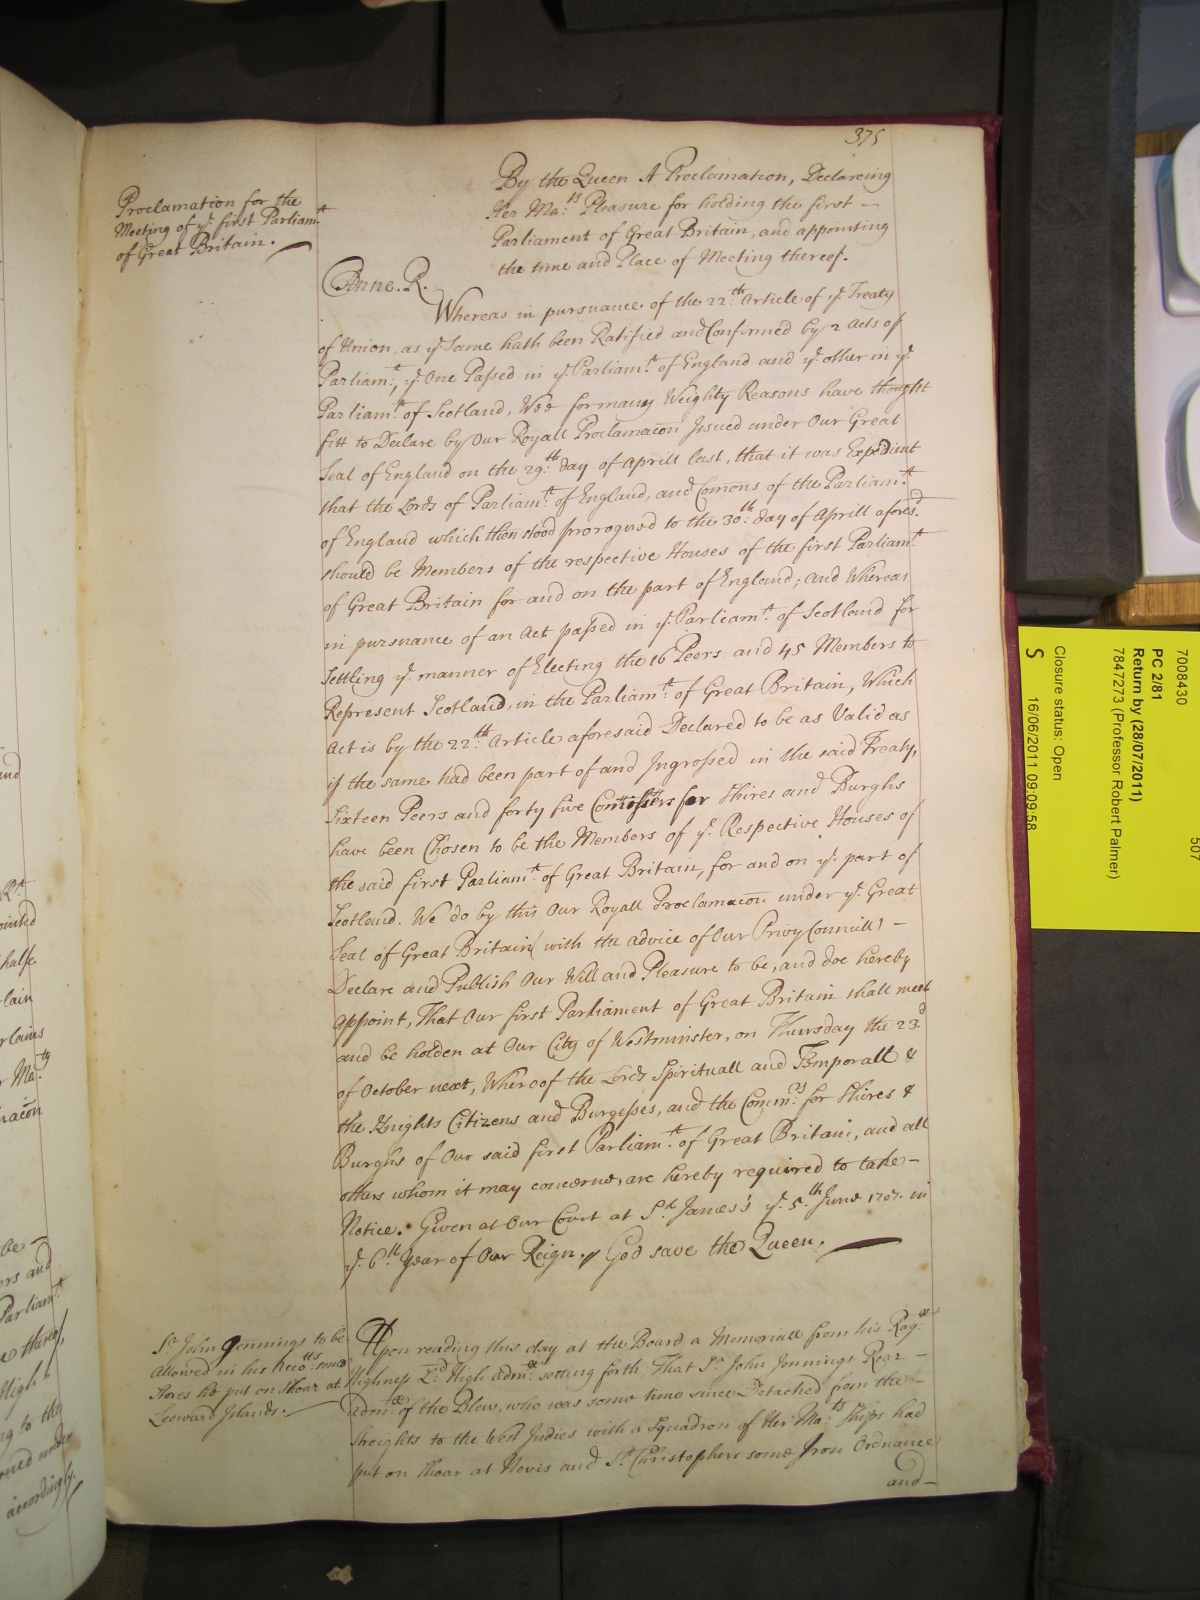 375
Proclamation for the
Meeting of yᵉ. first Parliamᵗ
of Great Britain.
By the Queen A Proclamation, Declareing
Her Ma:ᵗˢ Pleasure for holding the first –
Parliament of Great Britain, and appointing
the time and Place of Meeting thereof.
Anne. R.
Whereas in pursuance of the 22:ᵗʰ Article of yᵉ Treaty
of Union, as yᵉ Same hath been Ratified and Confirmed by 2 Acts of
Parliam:ᵗ, yᵉ One Passed in yᵉ Parliam:ᵗ of England and yᵉ other in yᵉ
Parliam:ᵗ of Scotland, Wee for many Weighty Reasons have thought
fitt to Declare by Our Royall Proclamacōn Issued under Our Great
Seal of England on the 29:ᵗʰ day of Aprill last, that it was Expedient
that the Lords of Parliam:ᵗ of England, and Comons of the Parliam:ᵗ
of England which then stood prorogued to the 30:ᵗʰ day of Aprill afores:ᵈ
should be Members of the respective Houses of the first Parliam:ᵗ
of Great Britain for and on the part of England; and Whereas
in pursuance of an Act passed in yᵉ Parliam:ᵗ of Scotland for
Settling yᵉ manner of Electing the 16 Peers and 45 Members to
Represent Scotland, in the Parliam:ᵗ of Great Britain, Which
Act is by the 22:ᵗʰ Article aforesaid Declared to be as Valid as
if the same had been part of and Ingrossed in the said Treaty,
Sixteen Peers and forty five for Shires and Burghs
have been Chosen to be the Members of yᵉ Respective Houses of
the said first Parliam:ᵗ of Great Britain, for and on yᵉ part of
Scotland. We do by this Our Royall Proclamacōn under yᵉ Great
Seal of Great Britain (with the advice of Our Privy Councill) –
Declare and Publish Our Will and Pleasure to be, and doe hereby
Appoint, That Our first Parliament of Great Britain shall meet
and be holden at Our City of Westminster, on Thursday the 23:ᵈ
of October next, Whereof the Lords Spirituall and Temporall &
the Knights Citizens and Burgesses, and the Comm:ʳˢ for Shires &
Burghs of Our said first Parliam:ᵗ of Great Britain, and all
others whom it may concerne, are hereby required to take –
Notice. Given at Our Court at Sᵗ. James's yᵉ 5:ᵗʰ June 1707. in
yᵉ 6:ᵗʰ Year of Our Reign. // God save the Queen.
Sʳ John Jennings to be
Allowed in his Acco:ᵗˢ some
Stores he put on Shoar at
Leeward Islands.
Upon reading this day at the Board a Memoriall from his Roy:ˡˡ
Highness Lᵈ. High Adm:ˡˡ setting forth That Sʳ. John Jennings Rear –
Adm:ˡˡ of the Blew, who was some time since Detached from the –
Streights to the West Indies with a Squadron of Her Ma:ᵗˢ Ships had
put on Shoar at Nevis and Sᵗ. Christophers some Iron Ordnance
and –
7008430
507
PC 2/81
Return by (28/07/2011)
7847273 (Professor Robert Palmer)
Closure status: Open
S
16/06/2011 09:09:58